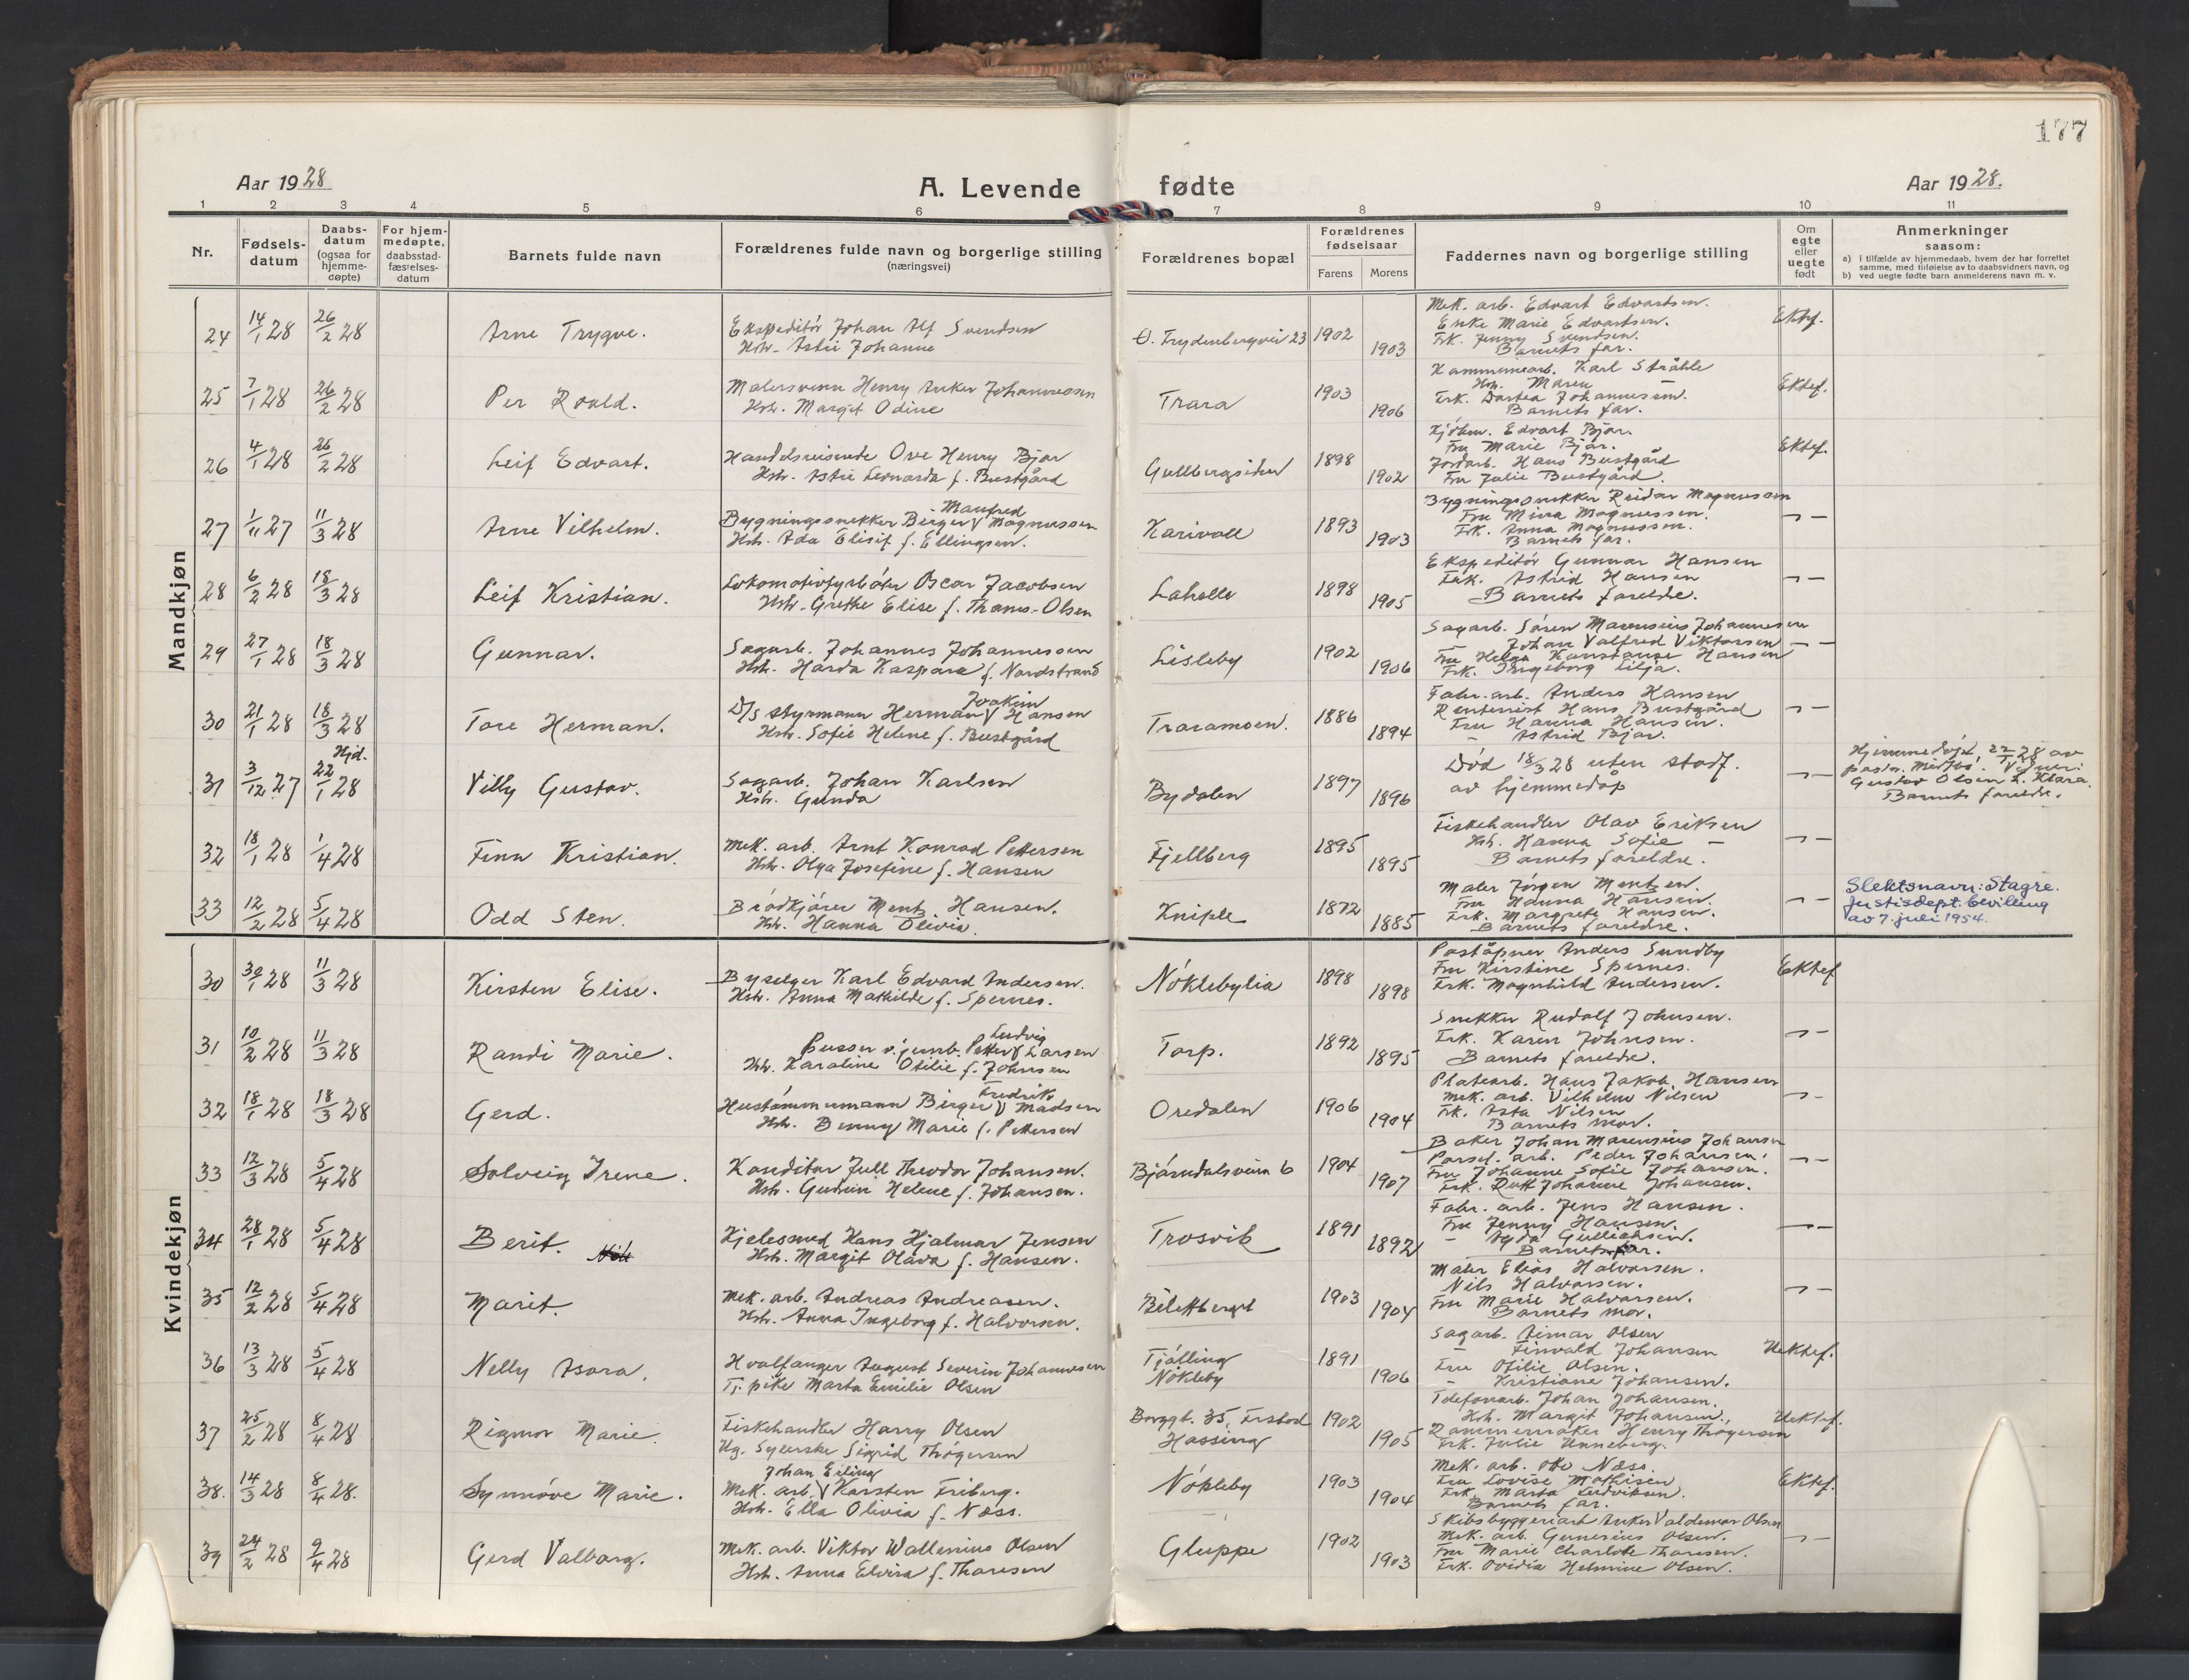 177
Aar 1928
A. Levende fødte
Aar 1928.
1 2 3 4 5 6 7 8 9 10 11
Nr.
Fødsels-
datum
Daabs-
datum
(ogsaa for
hjemme-
døpte)
For hjem-
medøpte,
daabsstad-
fæstelses-
datum
Barnets fulde navn
Forældrenes fulde navn og borgerlige stilling
(næringsvei)
Forældrenes bopæl
Forældrenes
fødselsaar
Farens Morens
Faddernes navn og borgerlige stilling
Om
egte
eller
uegte
født
Anmerkninger
saasom:
a) i tilfælde av hjemmedaab, hvem der har forrettet
samme, med tilføielse av to daabsvidners navn, og
b) ved uegte fødte barn anmelderens navn m. v.
Mandkjøn
24 14/1 28 26/2 28 Arne Trygve.
Ekspeditör Johan Alf Svendsen
Hst. Astri Johanne
Ö. Frydenbergvei 23 1902 1903
Mek. arb. Edvart Edvartsen.
Enke Marie Edvartsen.
Frk. Jenny Svendsen.
Barnets far.
Ektef.
25 7/1 28 26/2 28 Per Roald.
Malersvenn Henry Anker Johannessen
Hst. Margit Odine
Trara 1903 1906
Kommunearb. Karl Ståhle
Hst. Maren —
Frk. Dortea Johannessen.
Barnets far.
Ektef.
26 4/1 28 26/2 28 Leif Edvart.
Handelsreisende Ove Henry Bjar
Hst. Astri Leonarda f. Bustgård
Gullbergsiden 1898 1902
Kjöbm. Edvart Bjar.
Fru Marie Bjar.
Jordarb. Hans Bustgård
Fru Julie Bustgård.
Ektef.
27 1/11 27 11/3 28 Arne Vilhelm.
Manfred
Bygningssnekker Birger V Magnussen
Hst. Ada Elisif f. Ellingsen.
Karivoll 1893 1903
Bygningssnekker Reidar Magnussen
Fru Mina Magnussen.
Frk. Anna Magnussen.
Barnets far.
— —
28 6/2 28 18/3 28 Leif Kristian.
Lokomotivfyrböter Oscar Jacobsen
Hst. Grethe Elise f. Thams-Olsen
Lahelle 1898 1905
Ekspeditör Gunnar Hansen
Frk. Astrid Hansen
Barnets foreldre.
— —
29 27/1 28 18/3 28 Gunnar.
Sagarb. Johannes Johannessen
Hst. Harda Kaspara f. Nordstrand
Lisleby 1902 1906
Sagarb. Sören Marensius Johannesen
— Johan Valfred Viktorsen
Fru Helga Konstanse Hansen
Frk. Ingeborg Lilja.
— —
30 21/1 28 18/3 28 Tore Herman.
Joakim
D/S styrmann Herman V Hansen
Hst. Sofie Helene f. Bustgård
Traramoen. 1886 1894
Fabr. arb. Anders Hansen
Rentenist Hans Bustgård
Fru Hanna Hansen.
— Astrid Bjar.
— —
31 3/12 27 Hjd. 22/1 28 Villy Gustav.
Sagarb. Johan Karlsen
Hst. Gunda
Bydalen 1897 1896
Död 18/3 28 uten stadf.
av hjemmedåp
— —
Hjemmedöpt 22/1 28 av
Gustav Olsen & Klara.
Barnets foreldre.
32 18/1 28 1/4 28 Finn Kristian.
Mek. arb. Arnt Konrad Pettersen
Hst. Olga Josefine f. Hansen
Fjellberg 1895 1895
Fiskehandler Olav Eriksen
Hst. Hanna Sofie —
Barnets foreldre.
— —
33 12/2 28 5/4 28 Odd Sten.
Brödkjörer Mentz Hansen.
Hst. Hanna Olivia.
Kniple 1872 1885
Maler Jörgen Mentzen.
Fru Hanna Hansen.
Frk. Margrete Hansen.
Barnets foreldre.
— —
Slektsnavn: Stagre.
Justisdept. bevilling
av 7. juli 1954.
Kvindekjøn
30 30/1 28 11/3 28 Kirsten Elise.
Byselger Karl Edvard Andersen.
Hst. Anna Mathilde f. Spernes.
Nöklebylia 1898 1898
Poståpner Anders Sundby
Fru Kirstine Spernes.
Frk. Magnhild Andersen.
Ektef
31 10/2 28 11/3 28 Randi Marie.
Ludvig
Pusser v. jernb. Petter V Larsen
Hst. Karoline Otilie f. Johnsen
Torp. 1892 1895
Snekker Rudolf Johnsen.
Frk. Karen Johnsen.
Barnets foreldre.
— —
32 18/1 28 18/3 28 Gerd.
Fredrik
Hustömmermann Birger V Madsen
Hst. Benny Marie f. Pettersen
Oredalen 1906 1904
Platearb. Hans Jakob Hansen
Mek. arb. Vilhelm Nilsen
Frk. Asta Nilsen
Barnets mor.
— —
33 12/3 28 5/4 28 Solveig Irene.
Konditor Jull Theodor Johansen.
Hst. Gudrun Helene f. Johansen.
Bjørndalsveien 6 1904 1907
Baker Johan Marensius Johansen
Porsel. arb. Peder Johansen.
Fru Johanne Sofie Johansen.
Frk. Rutt Johanne Johansen.
— —
34 28/1 28 5/4 28 Berit.
Kjelesmed Hans Hjalmar Jensen
Hst. Margit Olava f. Hansen.
Trosvik 1891 1892
Fabr. arb. Jens Hansen.
Fru Jenny Hansen.
— Agda Gulliksen.
Barnets far.
— —
35 12/2 28 5/4 28 Marit.
Mek. arb. Andreas Andreasen.
Hst. Anna Ingeborg f. Halvorsen.
1903 1904
Maler Elias Halvorsen.
Nils Halvorsen.
Fru Marie Halvorsen.
Barnets mor.
— —
36 13/3 28 5/4 28 Nelly Asora.
Hvalfanger August Severin Johannesen
Tj. pike Marta Emilie Olsen
Tjölling
Nökleby
1891 1906
Sagarb. Aimar Olsen
— Finvald Johansen
Fru Otilie Olsen.
— Kristiane Johansen.
Uektef.
37 25/2 28 8/4 28 Rigmor Marie.
Fiskehandler Harry Olsen
Ug. Syerske Sigrid Thögersen
Borggt. 35, Frstad
Hassing
1902 1905
Telefonarb. Johan Johansen.
Hst. Margit Johansen.
Rammemaker Henry Thögersen
Frk. Julie Unneberg.
Uektef.
38. 14/3 28 8/4 28. Synnöve Marie.
Johan Erling
Mek. arb. V Karsten Friberg.
Hst. Ella Olivia f. Næss.
Nökleby 1903 1904
Mek. arb. Otto Næss.
Fru Lovise Mathisen
Frk. Marta Ludviksen.
Barnets far.
Ektef.
39 24/2 28 9/4 28 Gerd Valborg.
Mek. arb. Viktor Wallenius Olsen
Hst. Anna Elvira f. Thoresen
Gluppe 1902 1903
Skibsbyggeriarb Anker Valdemar Olsen
Mek. arb. Gunerius Olsen.
Fru Marie Charlotte Thoresen.
Frk. Ovidia Helmine Olsen.
— —